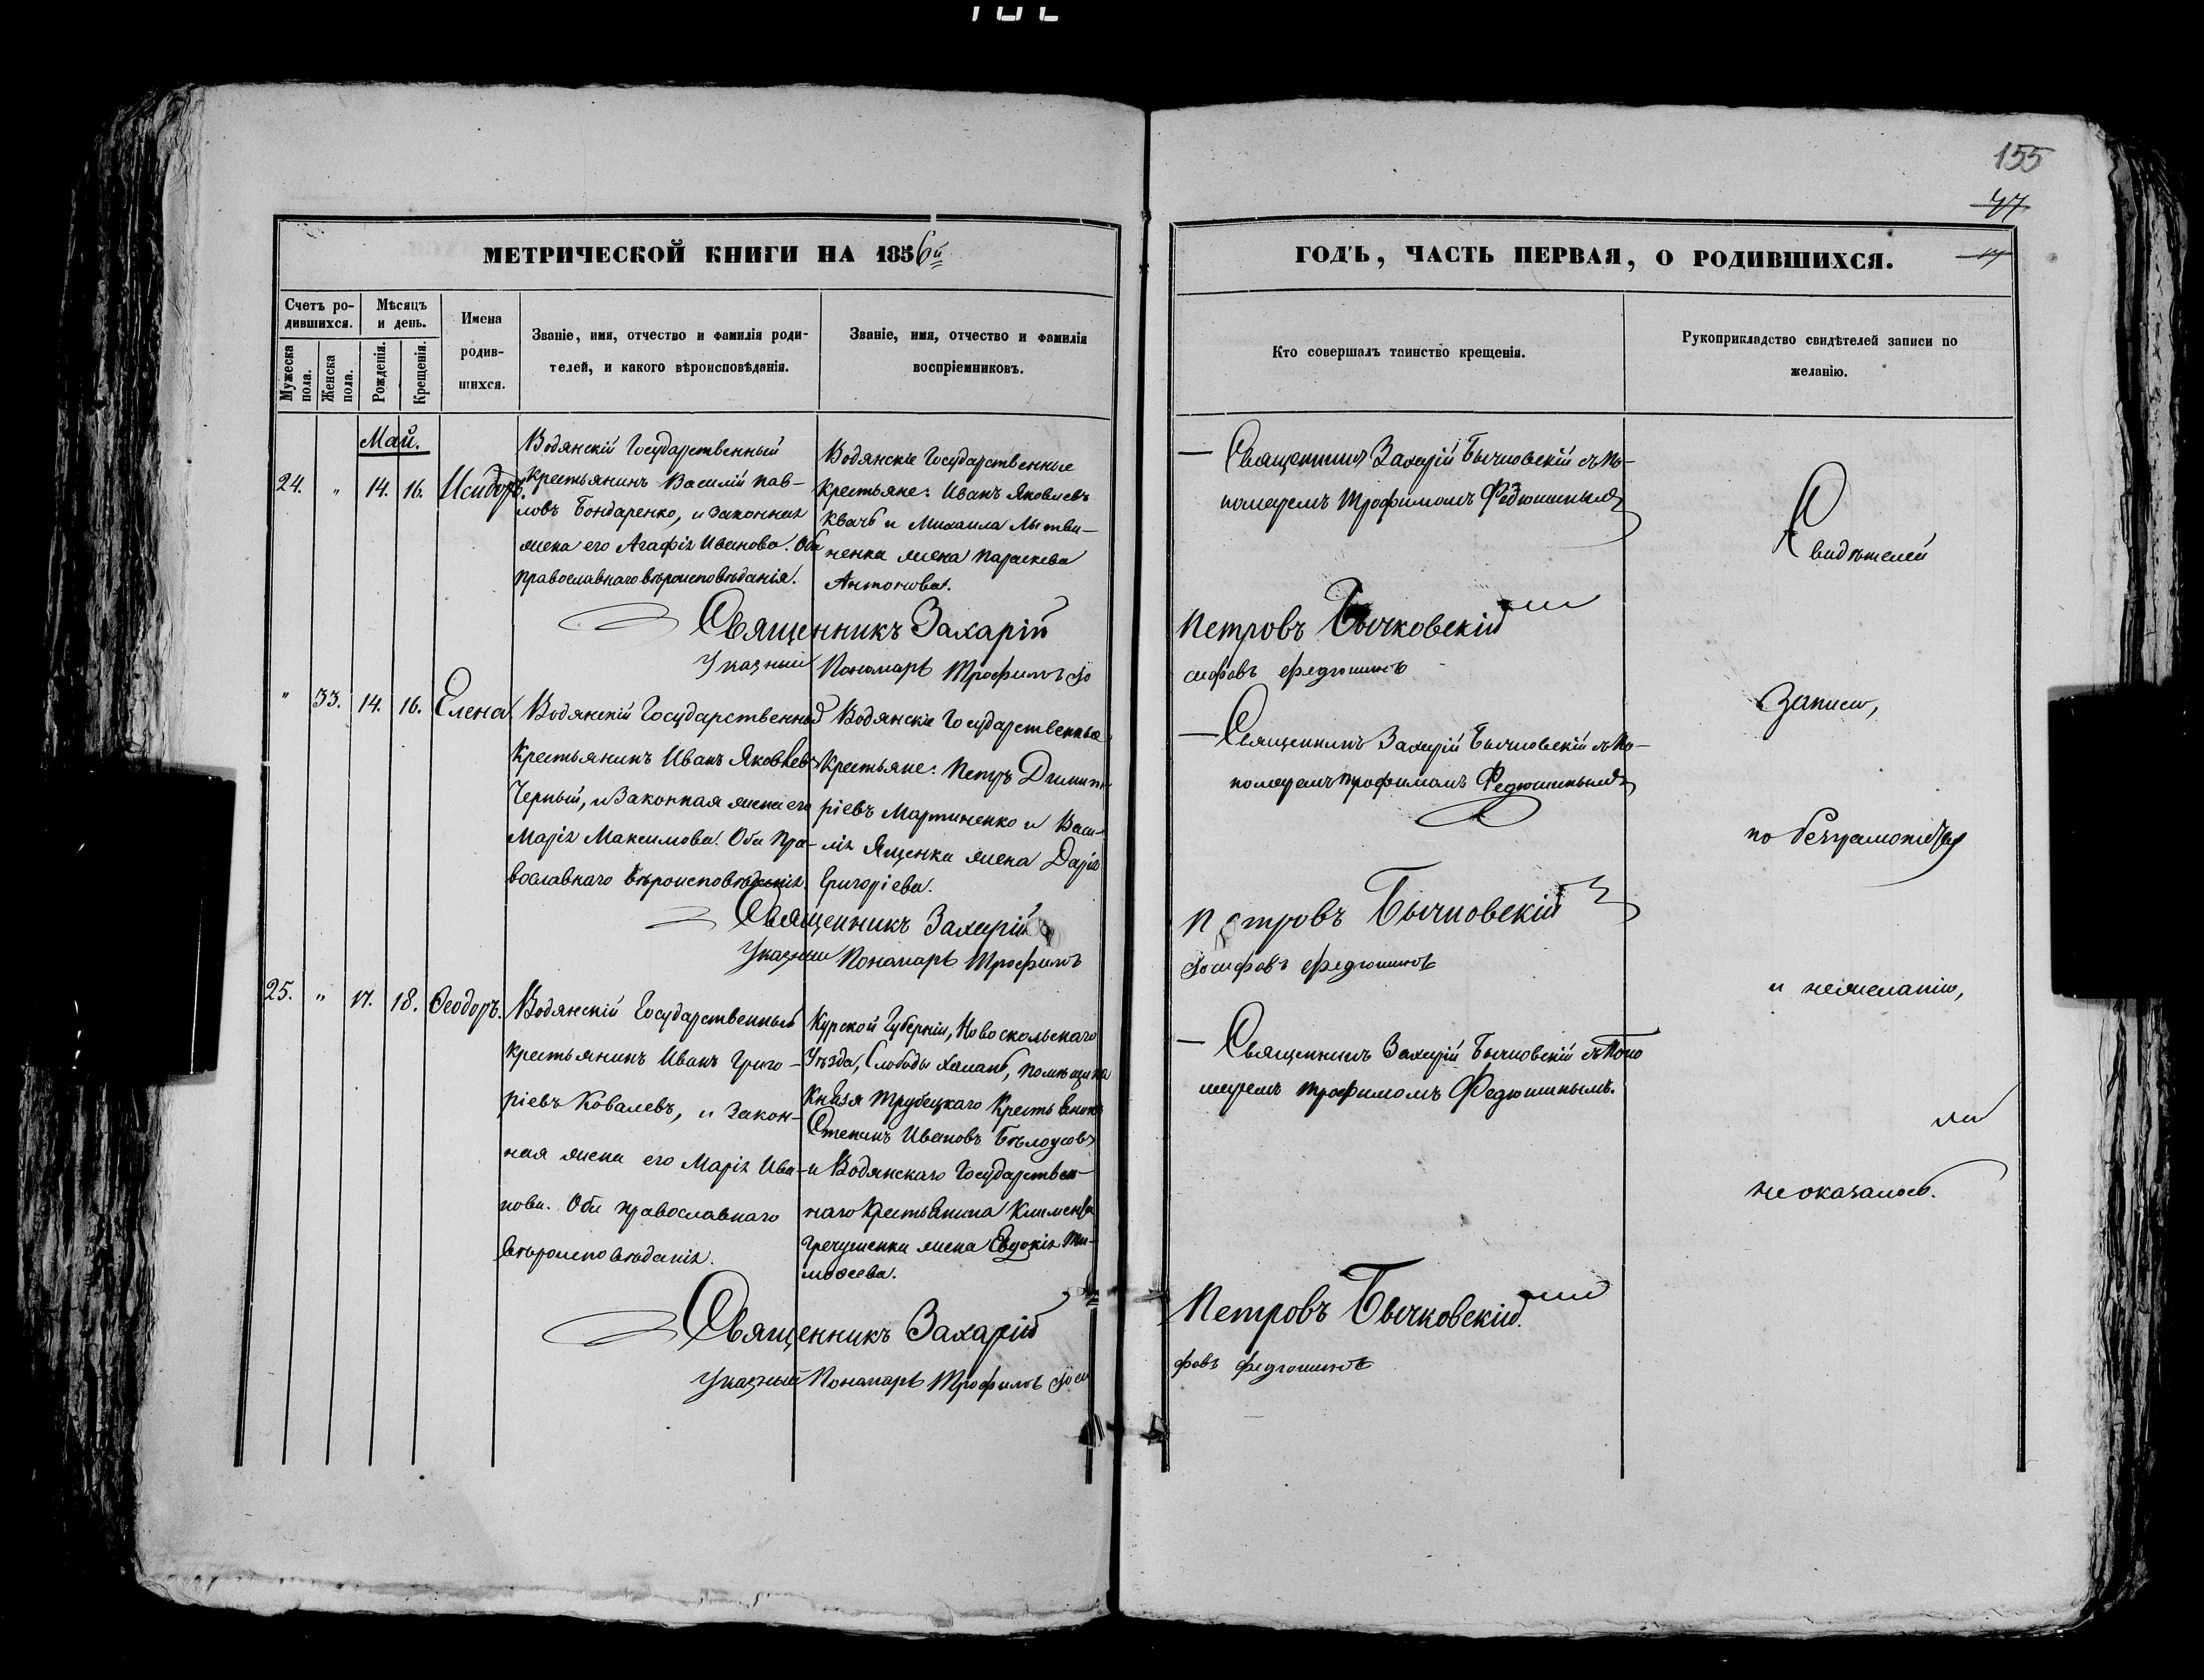 155
47
МЕТРИЧЕСКОЙ КНИГИ НА 1856й
Счетъ ро-
дившихся.
Мѣсяцъ
и день.
Мужеска
пола.
Женска
пола.
Рожденія.
Крещенія.
Имена
родив-
шихся.
Званіе, имя, отчество и фамилія роди-
телей, и какого вѣроисповѣданія.
Званіе, имя, отчество и фамилія
воспріемниковъ.
Май.
24. „ 14. 16. Исидоръ.
Водянскій Государственный
крестьянинъ Василій Пав-
ловъ Бондаренко, и законная
жена его Агафія Иванова. Оба
православнаго вѣроисповѣданія.
Водянскіе Государственные
крестьяне: Иванъ Яковлевъ
Квачъ и Михаила Литви-
ненка жена Параскева
Антонова.
Священникъ Захарій
Указный Пономарь Трофимъ Іо
„ 33. 14. 16. Елена.
Водянскій Государственный
крестьянинъ Иванъ Яковлевъ
Черный, и законная жена его
Марія Максимова. Оба пра-
вославнаго вѣроисповѣданія.
Водянскіе Государственные
крестьяне: Петръ Димит-
ріевъ Мартиненко и Васи-
лія Ященка жена Дарія
Григоріева.
Священникъ Захарій
Указный Пономарь Трофимъ
25. „ 17. 18. Ѳеодоръ.
Водянскій Государственный
крестьянинъ Иванъ Григо-
ріевъ Ковалевъ, и закон-
ная жена его Марія Ива-
нова. Оба православнаго
вѣроисповѣданія.
Курской Губерніи, Новоскольскаго
Уѣзда, Слободы Халань, помѣщика
Князя Трубецкаго крестьянинъ
Степанъ Ивановъ Бѣлоусовъ
и Водянскаго Государствен-
наго крестьянина Климента
жена Евдокія Ти-
моѳеева.
Священникъ Захарій
Указный Пономарь Трофимъ Іоси
ГОДЪ, ЧАСТЬ ПЕРВАЯ, О РОДИВШИХСЯ.
Кто совершалъ таинство крещенія.
Рукоприкладство свидѣтелей записи по
желанію.
— Священникъ Захарій Бычковскій съ По-
номаремъ Трофимомъ Федюшинымъ
Петровъ Бычковскій
сифовъ Федюшинъ
— Священникъ Захарій Бычковскій съ По-
номаремъ Трофимомъ Федюшинымъ
Петровъ Бычковскій
Іосифовъ Федюшинъ
— Священникъ Захарій Бычковскій съ Поно
маремъ Трофимомъ Федюшинымъ.
Петровъ Бычковскій
фовъ Федюшинъ
Свидѣтелей
записи,
и нежеланію,
не оказалось.